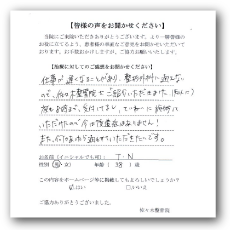 【皆様の声をお聞かせください】
当院にご来院いただきありがとうございます。より一層皆様の
お役に立てるよう、患者様の率直なご意見をお聞かせいただいて
おります。お手数おかけしますが、ご協力お願いいたします。
【治療に対してのご感想をお聞かせください】
仕事が遅くなることがあり、整形外科に通えない
ので、佐々木整骨院をご紹介いただきました。
夜も
いただけたので今は後遺症はありません!
また、何かあれば通わせていただきたいです。
お名前(イニシャルでも可): T・N
性別(男・女) 年齢( 38 )歳
この内容をホームページ等に掲載してもよろしいでしょうか?
はい □いいえ
ご協力ありがとうございました。
佐々木整骨院